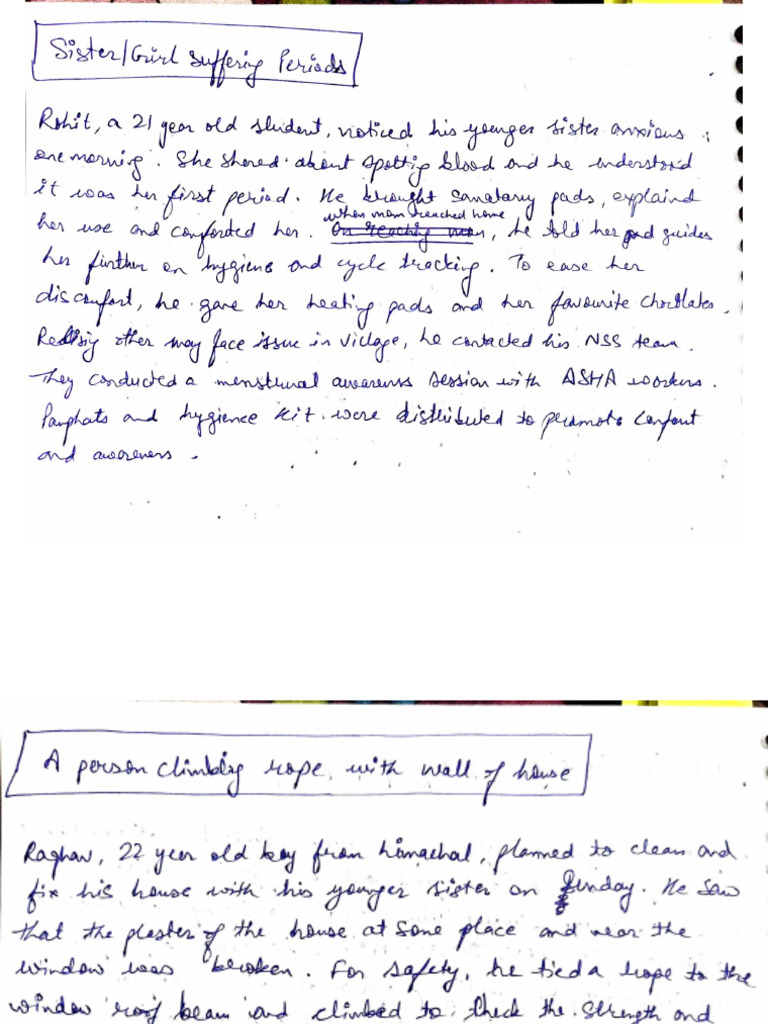 Sister/Girl suffering Periods
Rohit, a 21 year old student, noticed his younger sister anxious
one morning. She shared about spotting blood and he understood
it was her first period. He brought sanatary pads, explaind
her use and comforted her. when mom reached home he told her and guides
her further on hygiene and cycle tracking. To ease her
discomfort, he gave her heating pads and her favourite chocolates.
Realisig other may face issue in village, he contacted his NSS team.
They conducted a menstrual awareness session with ASHA workers.
Pamphats and hygience kit were distributed to promote comfort
and awareness.
A person climbing rope with wall of house
Raghav, 22 year old boy from himachal, planned to clean and
fix his house with his younger sister on Sunday. He saw
that the plaster of the house at some place and near the
window was broken. For safety, he tied a rope to the
window roof beam and climbed to check the strength and